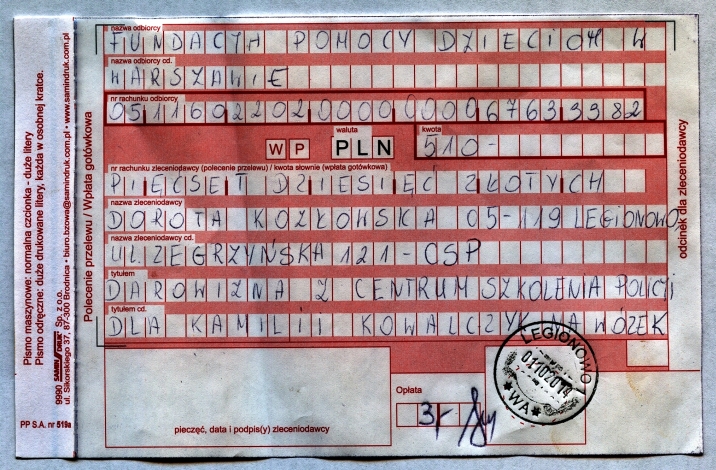 nazwa odbiorcy
FUNDACJA POMOCY DZIECIOM W
nazwa odbiorcy cd.
WARSZAWIE
nr rachunku odbiorcy
05116022020000000067633982
WP
waluta
PLN
kwota
510-
nr rachunku zleceniodawcy (polecenie przelewu) / kwota słownie (wpłata gotówkowa)
PIĘCSET DZIESIĘĆ ZŁOTYCH
nazwa zleceniodawcy
DOROTA KOZŁOWSKA 05-119 LEGIONOWO
nazwa zleceniodawcy cd.
UL. ZEGRZYŃSKA 121-CSP
tytułem
DAROWIZNA Z CENTRUM SZKOLENIA POLICJI
tytułem cd.
DLA KAMILII KOWALCZYK NA WÓZEK
LEGIONOWO 1
01102014
*WA*
Opłata
3,-
pieczęć, data i podpis(y) zleceniodawcy
Polecenie przelewu / Wpłata gotówkowa
odcinek dla zleceniodawcy
Pismo maszynowe: normalna czcionka - duże litery
Pismo odręczne: duże drukowane litery, każda w osobnej kratce.
9990 SAMIN DRUK Sp. z o.o.
ul. Sikorskiego 37, 87-300 Brodnica • biuro.bzowa@samindruk.com.pl • www.samindruk.com.pl
PP S.A. nr 519a